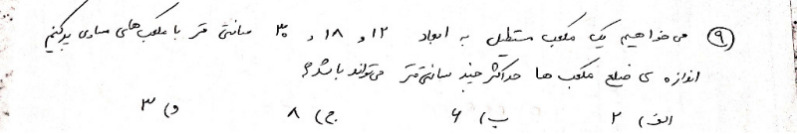 ۹) می خواهیم یک مکعب مستطیل به ابعاد ۱۲ و ۱۸ و ۳۰ سانتی متر با مکعب های مساوی پر کنیم
اندازه ی ضلع مکعب ها حداکثر چند سانتی متر می تواند باشد؟
الف) ۲ ب) ۶ ج) ۸ د) ۳